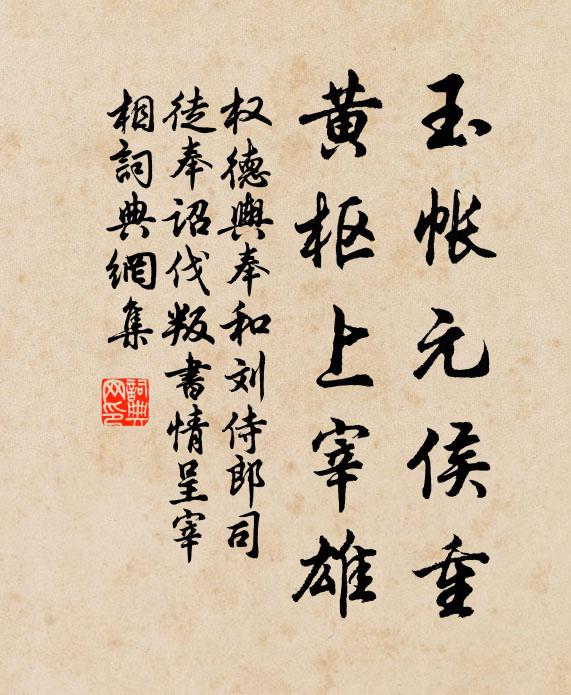 玉帐元侯重
黄枢上宰雄
权德舆奉和刘侍郎司
徒奉诏伐叛书情呈宰
相词典网集
词典
网印